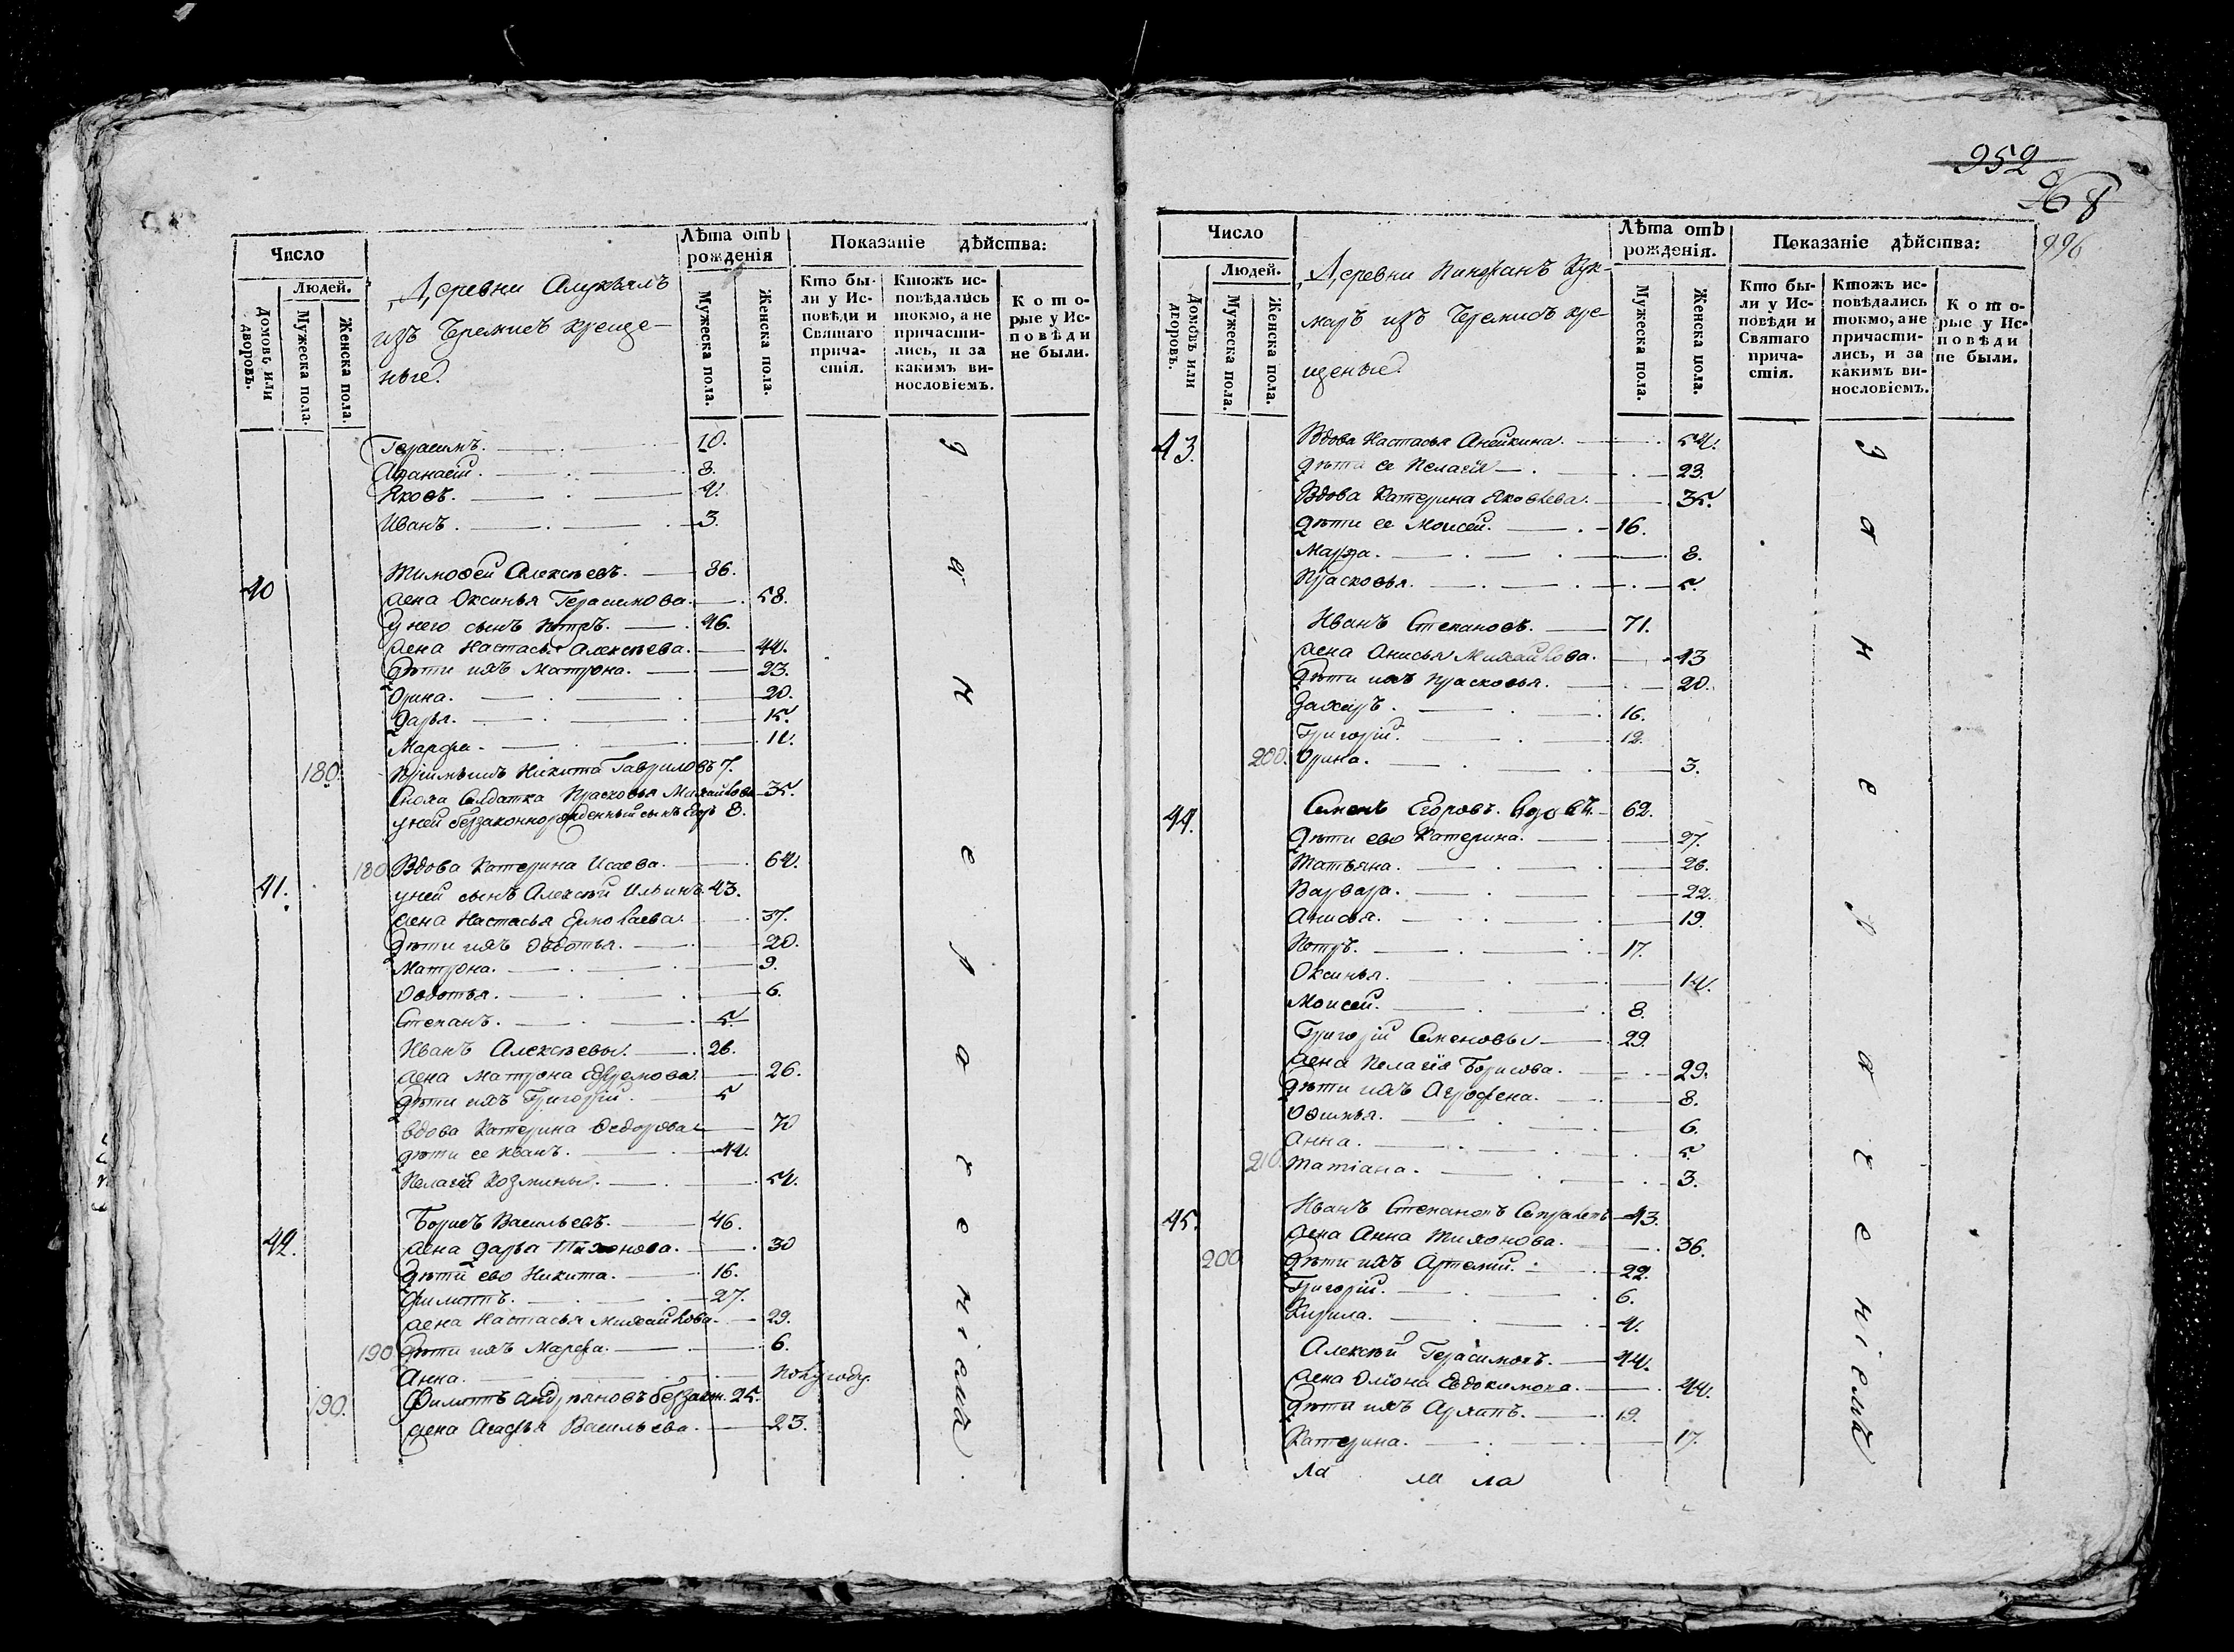 Число
Людей.
Домовъ или дворовъ.
Мужеска пола.
Женска пола.
Деревни
изъ Черемисъ креще-
ные.
Лѣта отъ рожденія
Мужеска пола.
Женска пола.
Показаніе дѣйства:
Кто бы-
ли у Ис-
повѣди и
Святаго
прича-
стія.
Ктожъ ис-
повѣдались
токмо, а не
причасти-
лись, и за
какимъ ви-
нословіемъ.
Кото-
рые у Ис-
повѣди
не были.
Герасимъ. 10.
Афанасій. 8.
Яковъ. 4.
Иванъ. 3.
40 Тимофей Алексѣевъ. 86.
жена Оксинья Герасимова. 58.
у него сынъ Петръ. 46.
жена Настасья Алексѣева. 44.
дѣти ихъ Матрона. 23.
Орина. 20.
Дарья. 15.
Марфа. 11.
180. Никита Гавриловъ 7.
Сноха Солдатка Прасковья Михайлова 35.
у ней беззаконнорожденный сынъ Егоръ 8.
41. 180 Вдова Катерина Исаева. 64.
у ней сынъ Алексѣй Ильинъ. 43.
жена Настасья Ермолаева. 37.
дѣти ихъ Овдотья. 20.
Матрона. 9.
Овдотья. 6.
Степанъ. 5.
Иванъ Алексѣевъ. 26.
жена Матрона Ефремова. 26.
дѣти ихъ Григорій. 5
вдова Катерина Федорова 70
дѣти ее Иванъ. 44.
Пелагія Козмина. 54.
42. Борисъ Васильевъ. 46.
жена Дарья Тихонова. 30
дѣти ево Никита. 16.
Филиппъ. 27.
жена Настасья Михайлова. 29.
190 дѣти ихъ Марфа. 6.
Анна. полугоду.
190. Филиппъ Андреяновъ беззакон. 25.
жена Агафья Васильева. 23.
за малолѣ
н е р а ч е н і е м ъ
952
968
996
Число
Людей.
Домовъ или дворовъ.
Мужеска пола.
Женска пола.
Деревни Пинжанъ Кук-
маръ изъ Черемисъ кре-
щеные.
Лѣта отъ рожденія.
Мужеска пола.
Женска пола.
Показаніе дѣйства:
Кто бы-
ли у Ис-
повѣди и
Святаго
прича-
стія.
Ктожъ ис-
повѣдались
токмо, а не
причасти-
лись, и за
какимъ ви-
нословіемъ.
Кото-
рые у Ис-
повѣди
не были.
43. Вдова Настасья Аникина. 54.
дѣти ее Пелагія 23.
Вдова Катерина Яковлева. 35.
дѣти ее Моисей. 16.
Марфа. 8.
Прасковья. 5.
Иванъ Степановъ. 71.
жена Анисья Михайлова. 43
дѣти ихъ Прасковья. 20.
Захаръ. 16.
Григорій. 12.
200. Орина. 3.
44. Семенъ Егоровъ. вдовъ. 62.
дѣти ево Катерина. 27.
Татьяна. 26.
Варвара. 22.
Анисья. 19.
Петръ. 17.
Оксинья. 14.
Моисей. 8.
Григорій Семеновъ 29.
жена Пелагія Борисова. 29.
дѣти ихъ Агрофена. 8.
Офимья. 6.
Анна. 5.
210. Татіана. 3.
45. Иванъ Степановъ 43.
жена Анна Тихонова. 36.
200 дѣти ихъ Артемій. 22.
Григорій. 6.
Кирила. 4.
Алексѣй Герасимовъ. 44.
жена Олiона Евдокимова. 44.
дѣти ихъ Архипъ. 19.
Катерина. 17.
за н е р а ч е н і е м ъ
ла ла ла